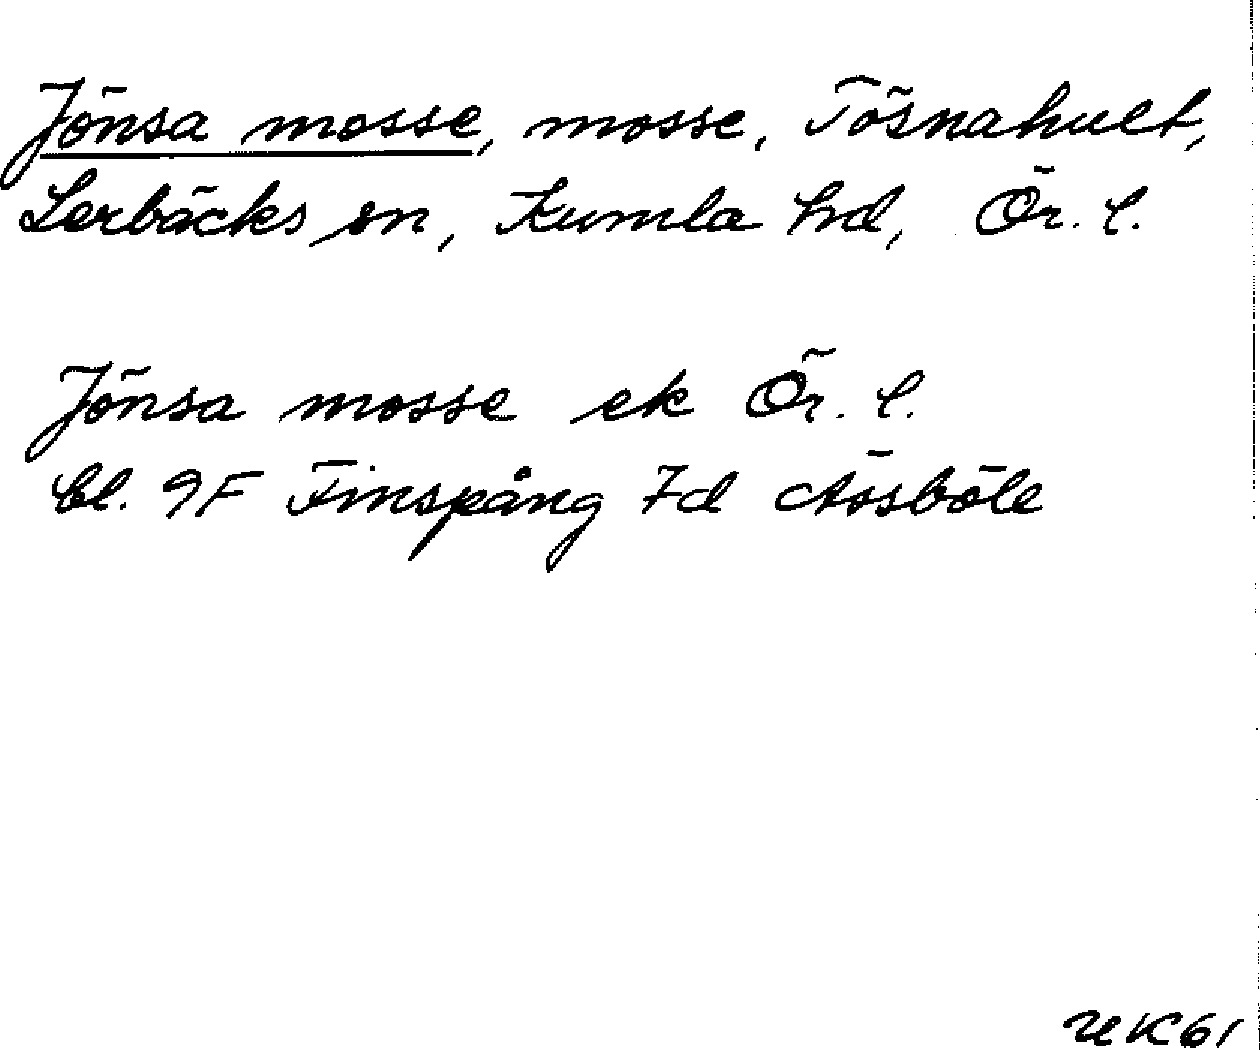 Jönsa mosse, mosse, Tösnahult,
Lerbäcks sn, Kumla hd, Ör. l.
Jönsa mosse ek Ör. l.
bl. 9F Finspång 7d Åösböle
UK61